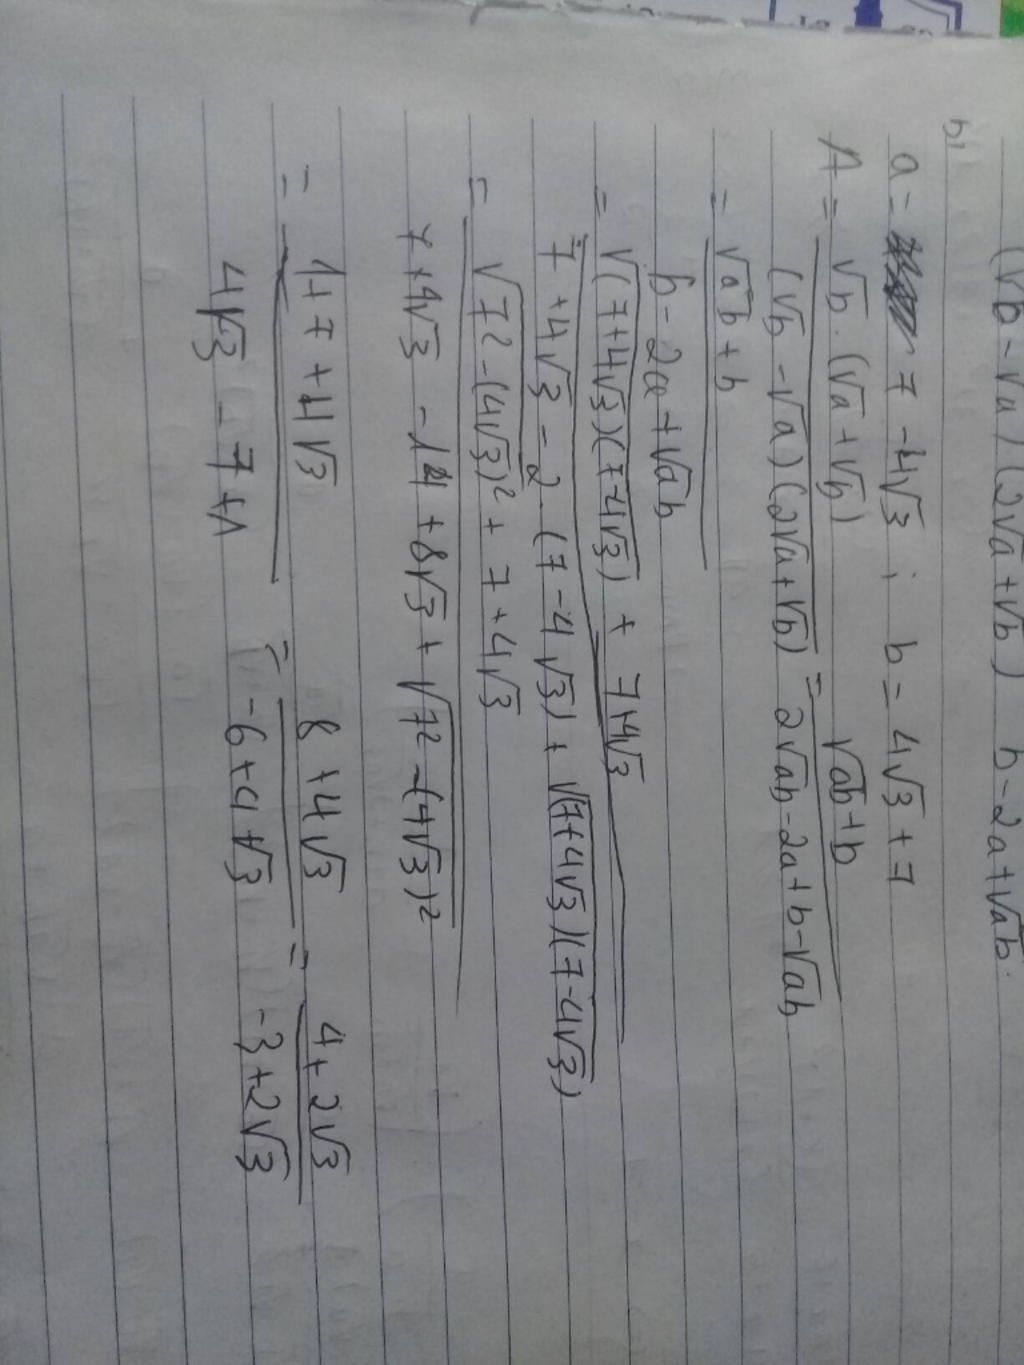 (√b - √a)(2√a + √b) b - 2a + √ab.
b,
a = 7 - 4√3 ; b = 4√3 + 7
A = √b . (√a + √b) / (√b - √a)(2√a + √b) = √ab + b / 2√ab - 2a + b - √ab
= √ab + b / b - 2a + √ab
= √(7 + 4√3)(7 - 4√3) + 7 + 4√3 / 7 + 4√3 - 2 . (7 - 4√3) + √(7 + 4√3)(7 - 4√3)
= √7² - (4√3)² + 7 + 4√3 / 7 + 4√3 - 14 + 8√3 + √7² - (4√3)²
= 1 + 7 + 4√3 / 4√3 - 7 + 1 = 8 + 4√3 / -6 + 4√3 = 4 + 2√3 / -3 + 2√3